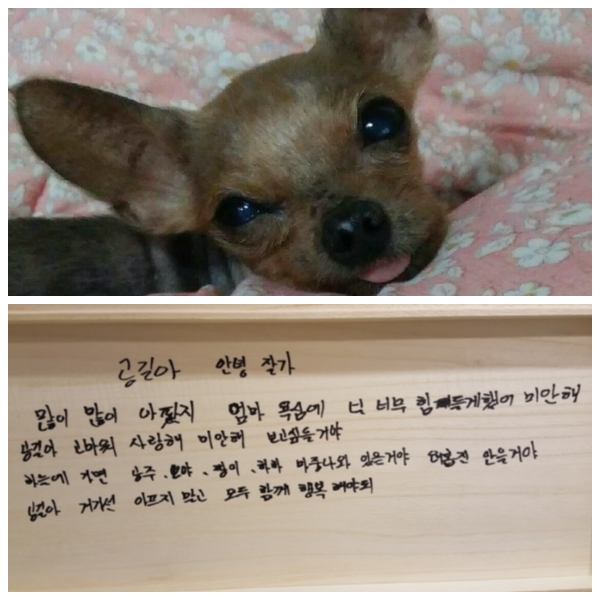 공길아 안녕 잘가
많이 많이 아팠지 엄마 욕심에 넌 너무 힘들게했어 미안해
공길아 고마워 사랑해 미안해 보고싶을거야
하늘에 가면 공주. 모야. 찡이. 하하 마중나와 있을거야 안을거야
공길아 거기선 아프지 말고 모두 함께 행복 해야되